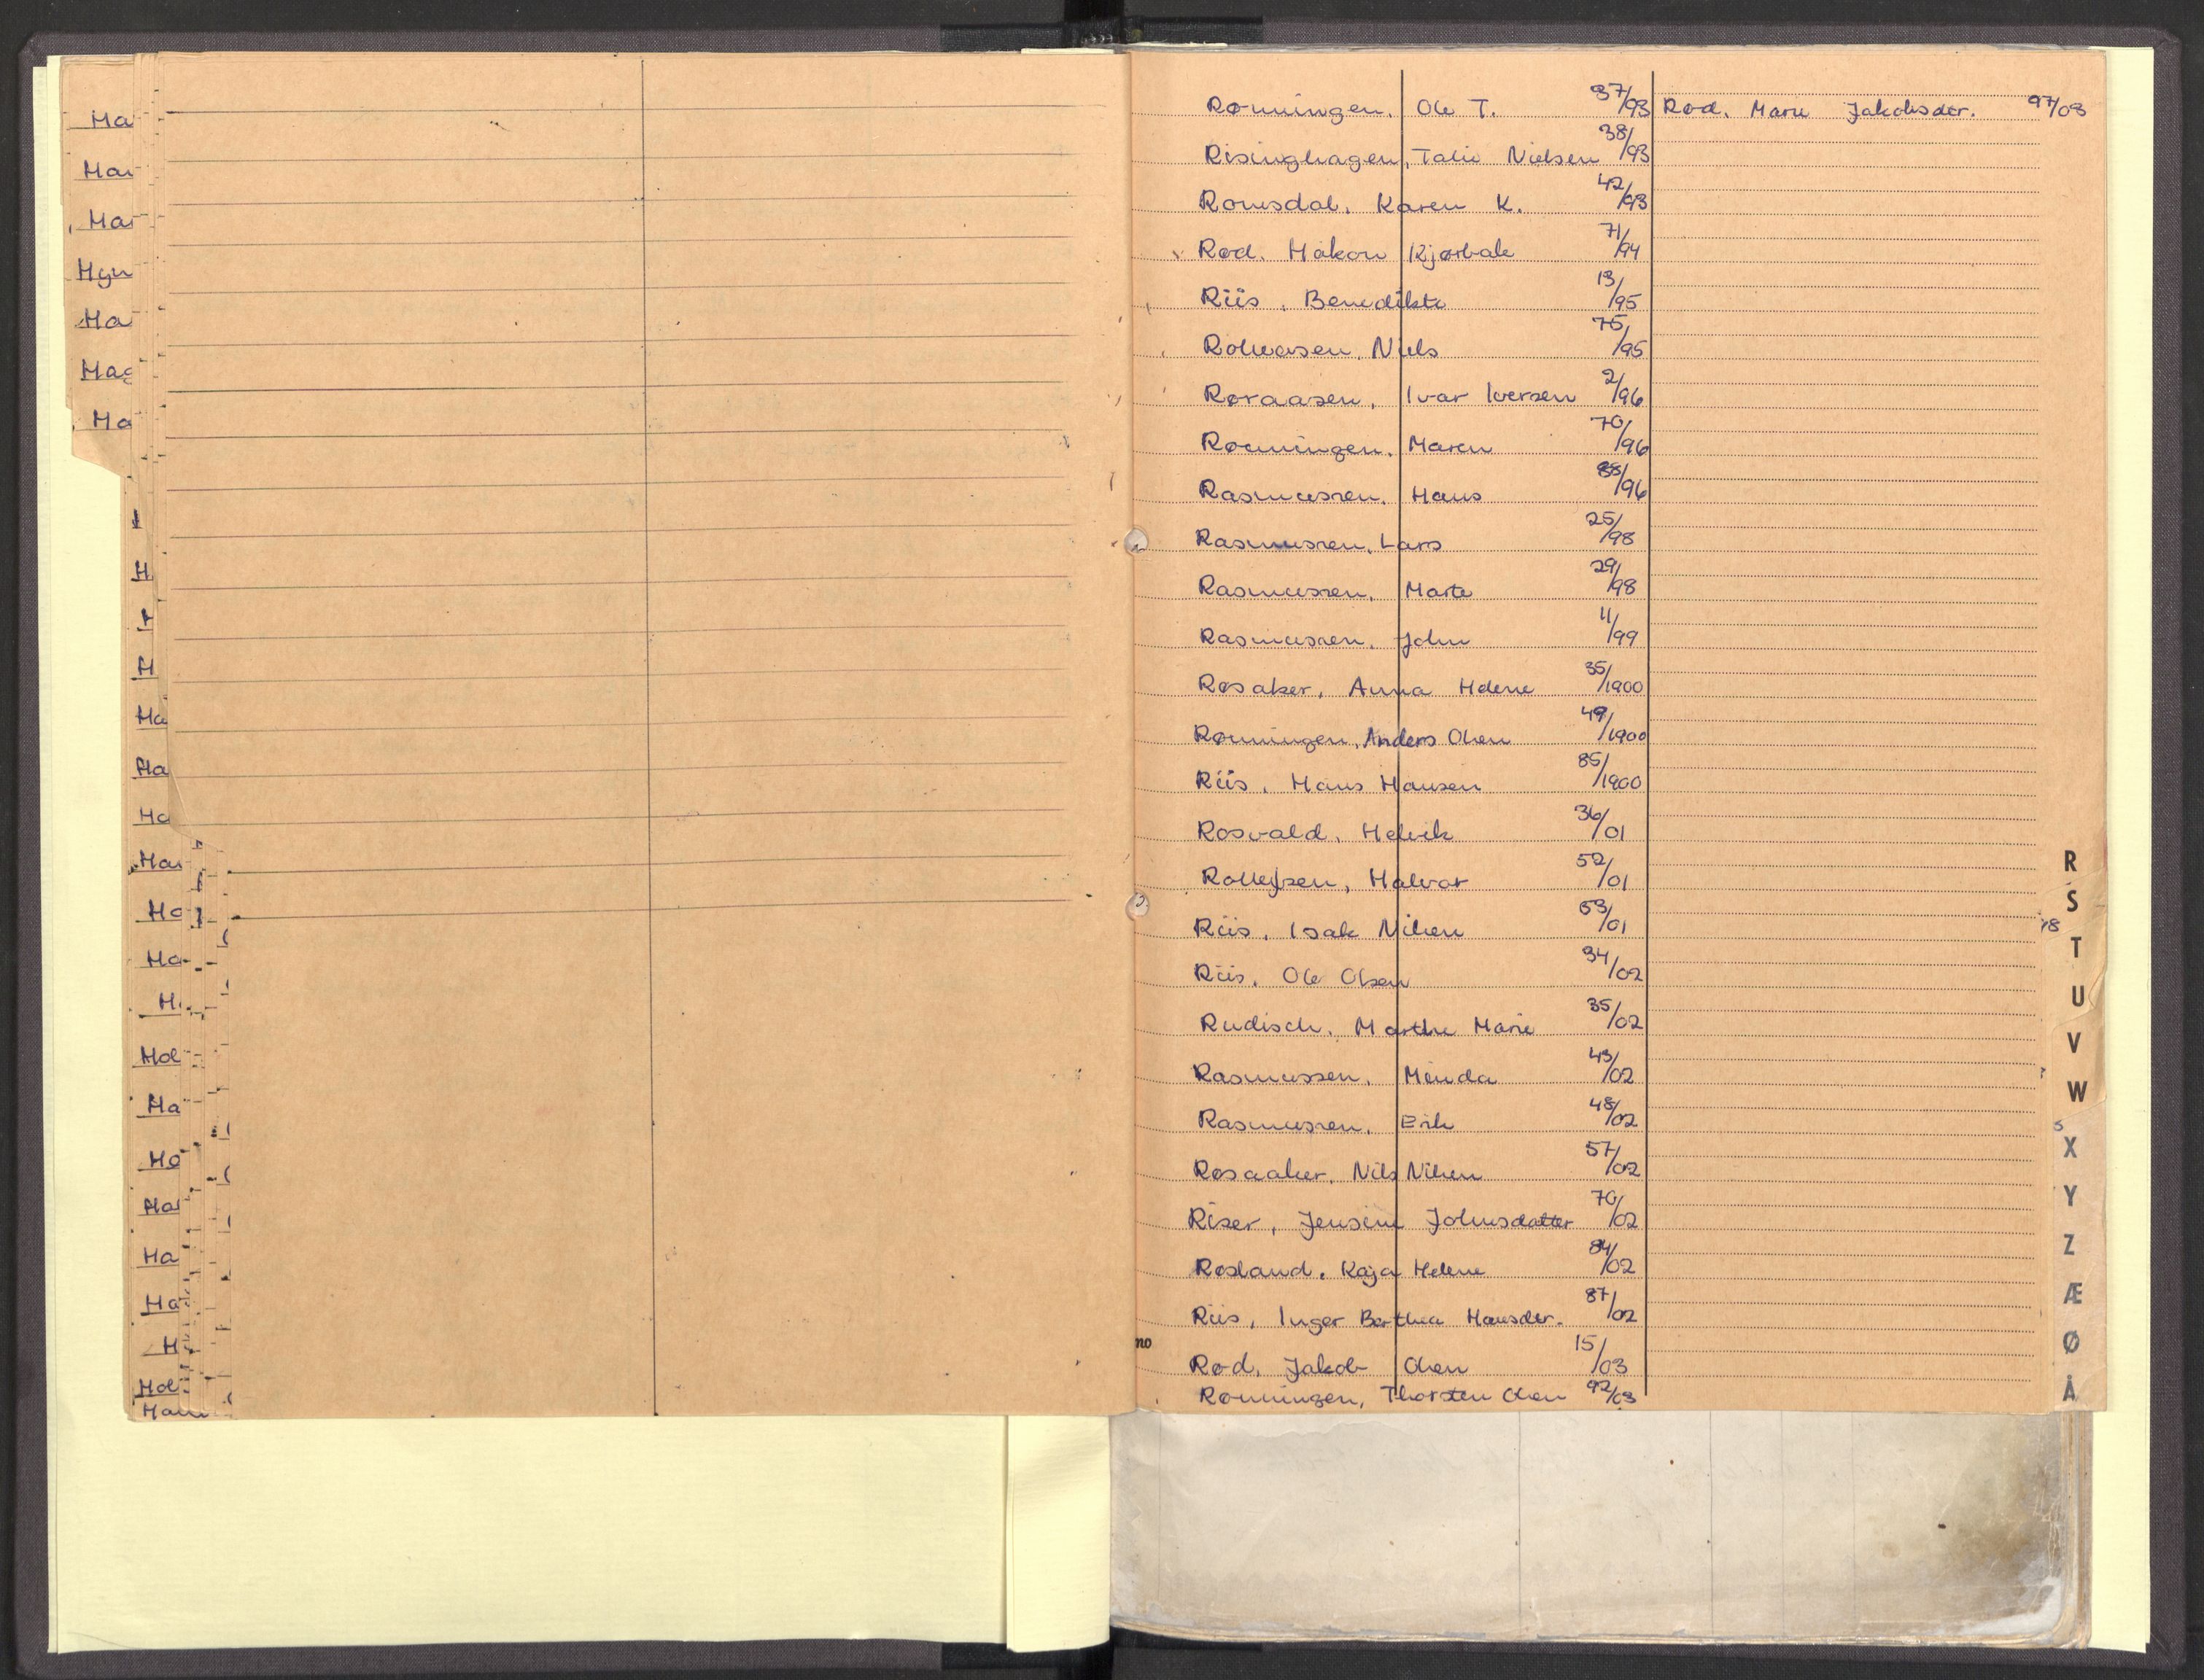 Ha
Ha
Ha
Hgn
Ha
Hag
Ha
H
H
Ha
Ha
Ha
Ha
Ha
Hol
Ha
Ha
Ha
Ha
Ha
H
Hol
Rønningen, Ole T. 37/93 Rød, Marie Jakobsdtr. 97/03
Risinghagen, Talie Nielsen 38/93
Romsdal, Karen K. 42/93
Rød, Håkon Kjørbale 71/94
Riis, Benedikte 13/95
Rolvasen, Niels 75/95
Røraasen, Ivar Iversen 2/96
Rønningen, Maren 70/96
Rasmussen, Hans 88/96
Rasmussen, Lars 25/98
Rasmussen, Marte 29/98
Rasmussen, John 11/99
Røsaker, Anna Helene 35/1900
Rønningen, Anders Olsen 49/1900
Riis, Hans Hansen 85/1900
Rosvald, Helvik 36/01
Rollefsen, Halvor 52/01
Riis, Isak Nilsen 53/01
Riis, Ole Olsen 34/02
Rudisch, Marthe Marie 35/02
Rasmussen, Menda 43/02
Rasmussen, Erik 48/02
Røsaaker, Nils Nilsen 57/02
Riser, Jensine Johnsdatter 70/02
Røsland, Kaja Helene 84/02
Riis, Inger Berthea Hansdtr. 87/02
no
Rød, Jakob Olsen 15/03
Rønningen, Thorsten Olsen 92/03
R
S
T
U
V
W
X
Y
Z
Æ
Ø
Å